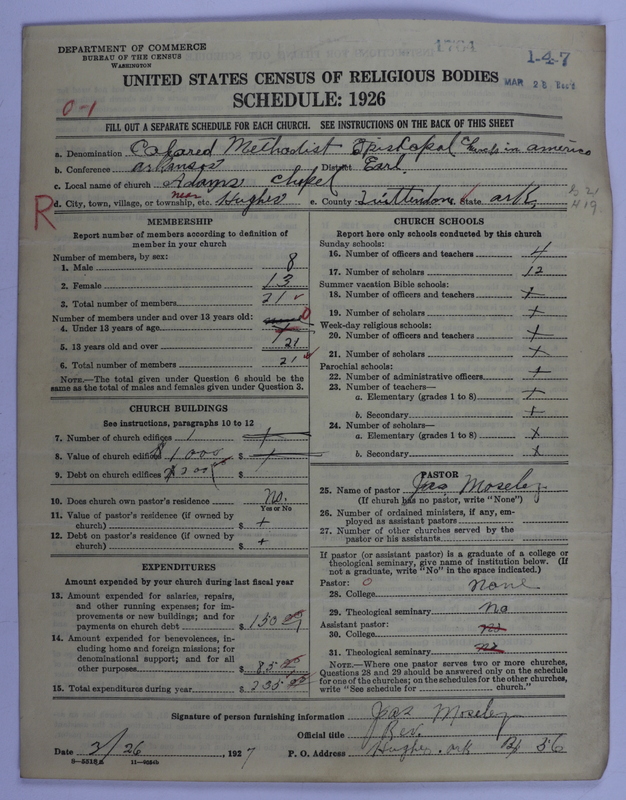 DEPARTMENT OF COMMERCE
BUREAU OF THE CENSUS
WASHINGTON
1764
1-4-7
MAR 28 Rec'd
UNITED STATES CENSUS OF RELIGIOUS BODIES
SCHEDULE: 1926
0-1
FILL OUT A SEPARATE SCHEDULE FOR EACH CHURCH. SEE INSTRUCTIONS ON THE BACK OF THIS SHEET
a. Denomination Colored Methodist Episcopal Church in america
b. Conference arkansas District Earl
c. Local name of church Adams Chapel
d. City, town, village, or township, etc. near Hughes e. County Crittenden State ark.
R
MEMBERSHIP
Report number of members according to definition of member in your church
Number of members, by sex:
1. Male 8
2. Female 13
3. Total number of members 21
Number of members under and over 13 years old:
4. Under 13 years of age 0
5. 13 years old and over 21
6. Total number of members 21
NOTE.—The total given under Question 6 should be the
same as the total of males and females given under Question 3.
CHURCH BUILDINGS
See instructions, paragraphs 10 to 12
7. Number of church edifices 1
8. Value of church edifices $1000 $
9. Debt on church edifices $200 $
10. Does church own pastor's residence? No.
Yes or No
11. Value of pastor's residence (if owned by
church) $ +
12. Debt on pastor's residence (if owned by
church) $ +
EXPENDITURES
Amount expended by your church during last fiscal year
13. Amount expended for salaries, repairs,
and other running expenses; for im-
provements or new buildings; and for
payments on church debt $ 150 00
14. Amount expended for benevolences, in-
cluding home and foreign missions; for
denominational support; and for all
other purposes $ 85 00
15. Total expenditures during year $ 235 00
CHURCH SCHOOLS
Report here only schools conducted by this church
Sunday schools:
16. Number of officers and teachers 4
17. Number of scholars 12
Summer vacation Bible schools:
18. Number of officers and teachers +
19. Number of scholars +
Week-day religious schools:
20. Number of officers and teachers +
21. Number of scholars +
Parochial schools:
22. Number of administrative officers +
23. Number of teachers—
a. Elementary (grades 1 to 8) +
b. Secondary +
24. Number of scholars—
a. Elementary (grades 1 to 8) +
b. Secondary +
PASTOR
25. Name of pastor Jas Moseley
(If church has no pastor, write "None")
26. Number of ordained ministers, if any, em-
ployed as assistant pastors
27. Number of other churches served by the
pastor or his assistants
If pastor (or assistant pastor) is a graduate of a college or
theological seminary, give name of institution below. (If
not a graduate, write "No" in the space indicated.)
Pastor: 0
28. College none
29. Theological seminary No
Assistant pastor:
30. College
31. Theological seminary
NOTE.—Where one pastor serves two or more churches,
Questions 28 and 29 should be answered only on the schedule
for one of the churches; on the schedules for the other churches,
write "See schedule for church."
Signature of person furnishing information Jas Moseley
Official title Rev.
Date 2/26, 1927 P. O. Address Hughes. ark Bx 56
8—5518a 11—9054b